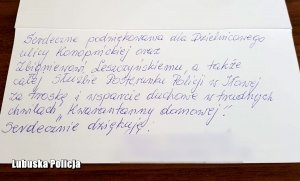 Serdeczne podziękowania dla Dzielnicowego
ulicy Konopnickiej oraz
Zbigniewowi Leszczyńskiemu, a także
całej Służbie Posterunku Policji w Iłowej
za troskę i wsparcie duchowe w trudnych
chwilach „Kwarantanny domowej".
Serdecznie dziękuję.
Lubuska Policja